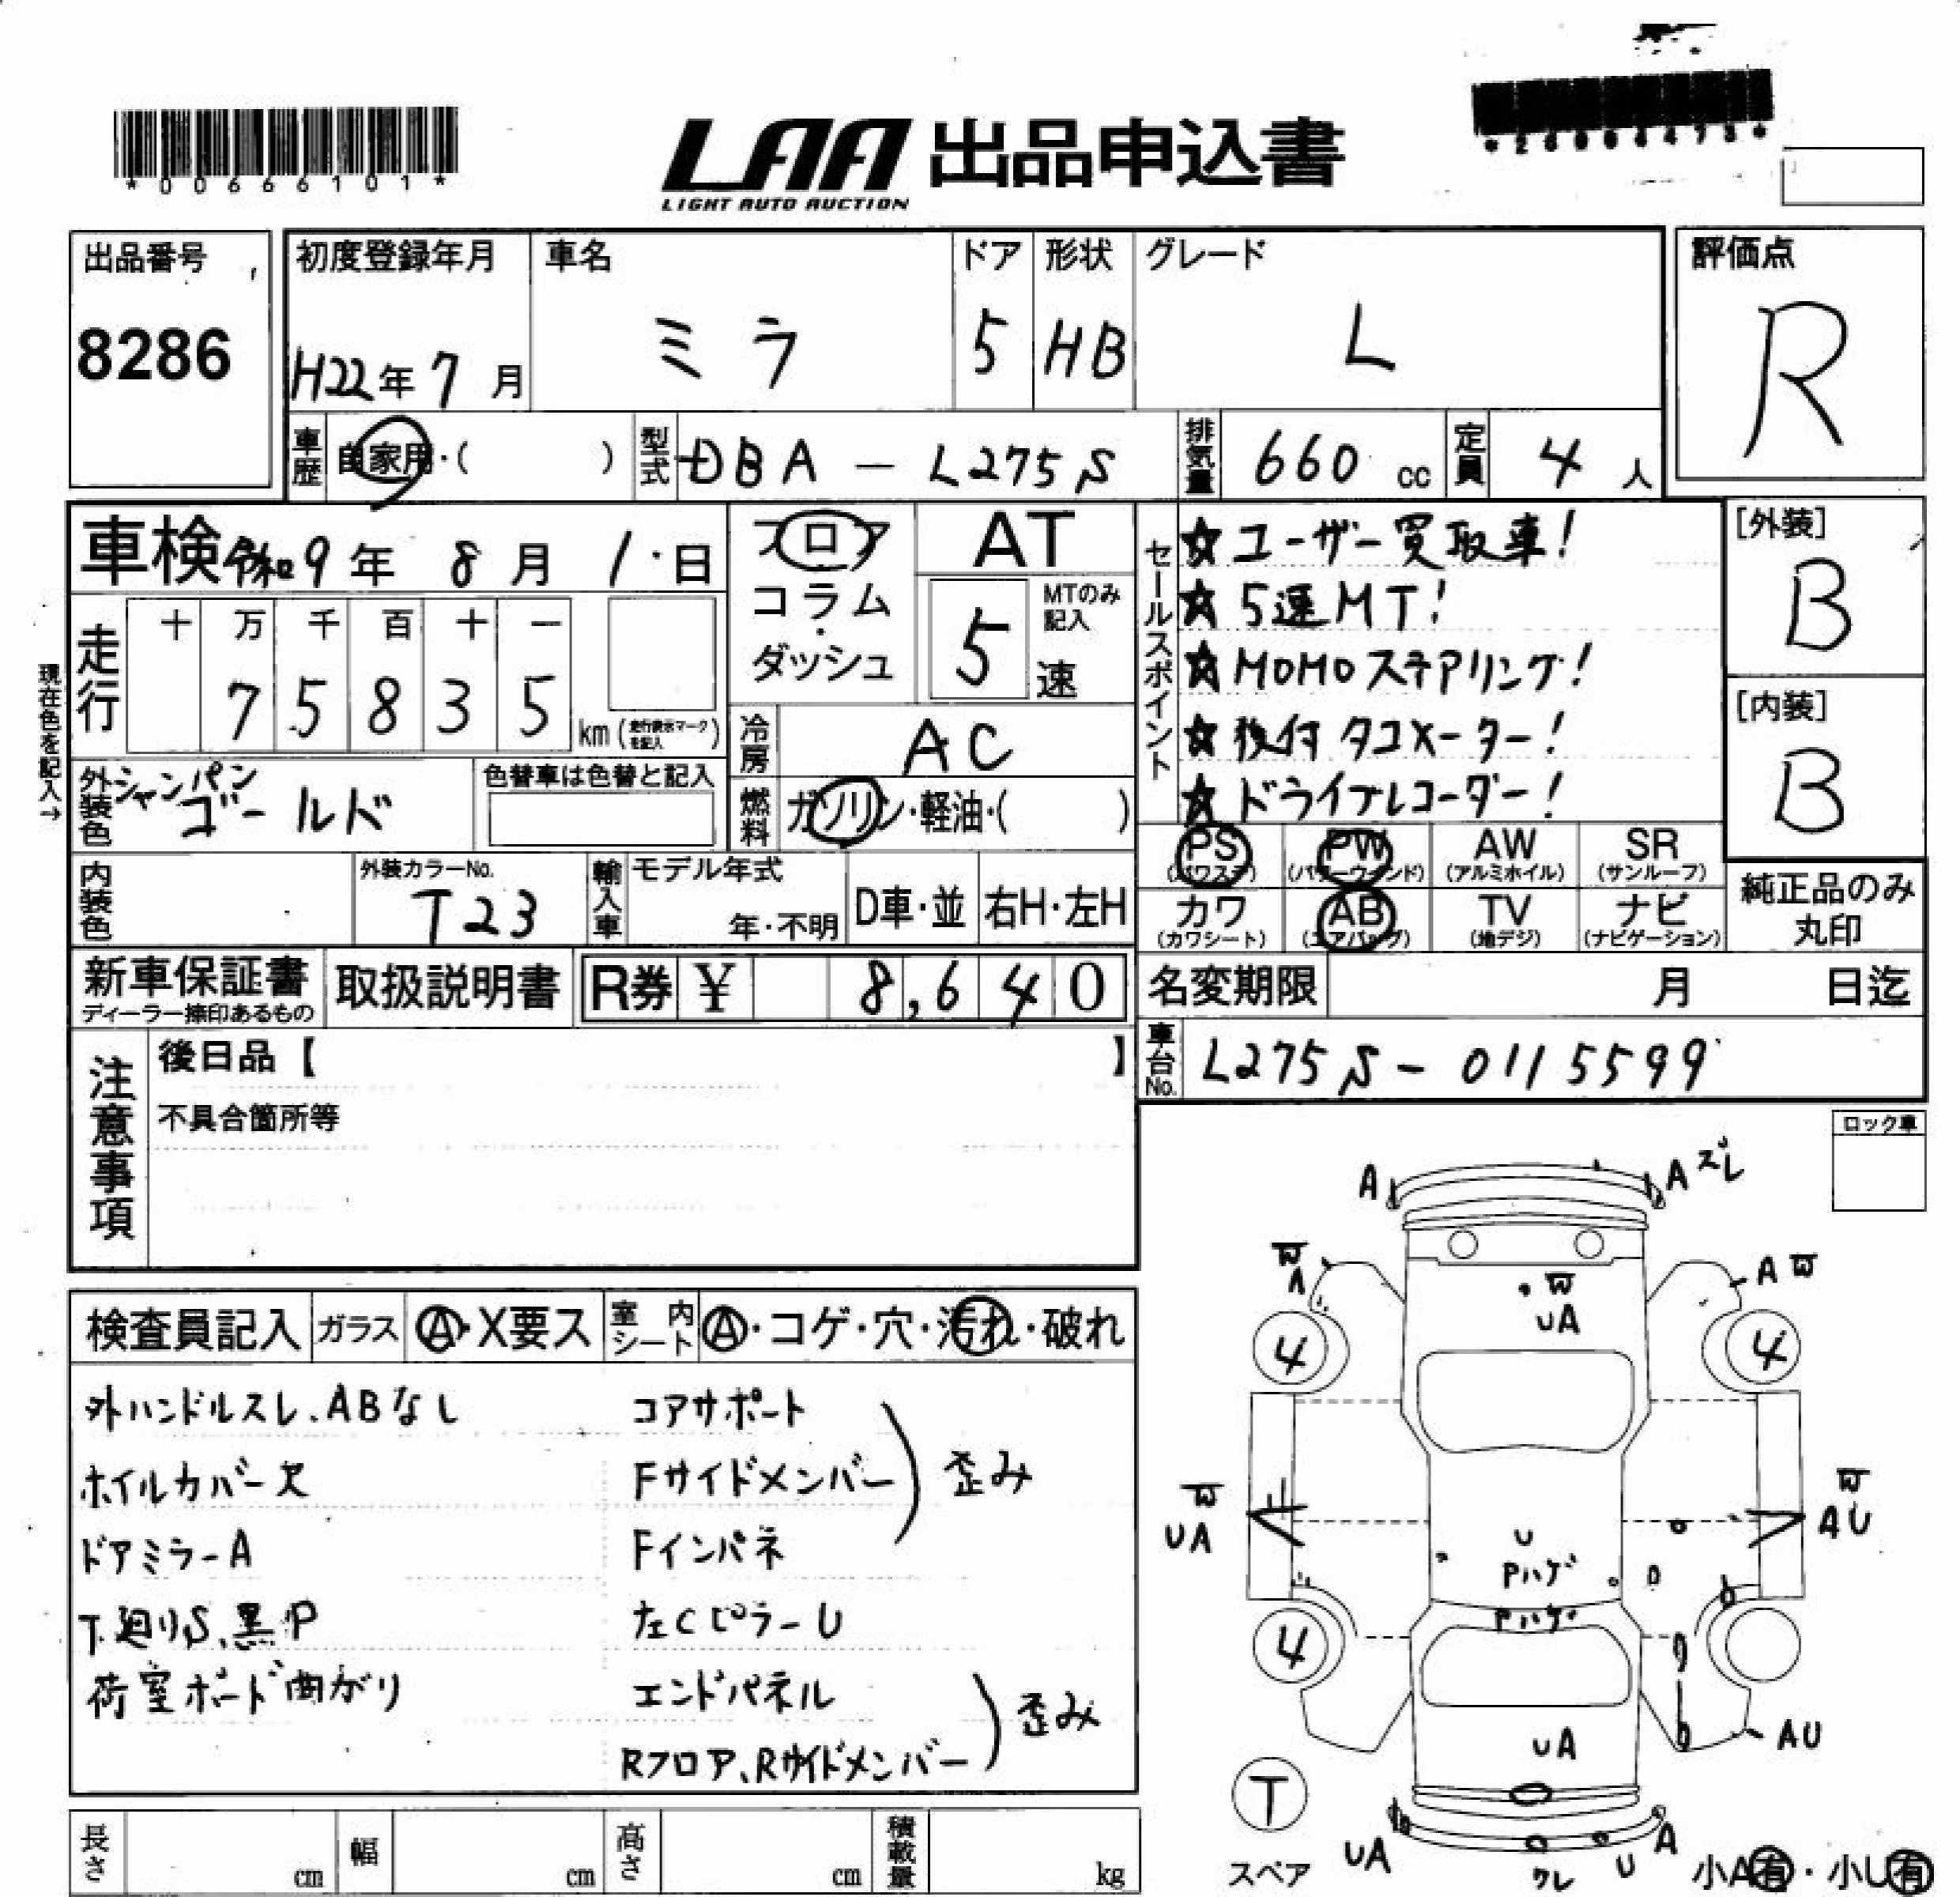 *00666101*
LAA 出品申込書
LIGHT AUTO AUCTION
出品番号
8286
初度登録年月
H22年7月
車名
ミラ
ドア
5
形状
HB
グレード
L
評価点
R
車歴 自家用・( )
型式 DBA-L275S
排気量 660 cc
定員 4 人
車検 令和9年 8月 1日
フロア・コラム・ダッシュ
AT
MTのみ記入
5 速
走行
十 万 千 百 十 一
7 5 8 3 5 km (走行表示マークを記入)
現在色を記入→
外装色 シャンパンゴールド
色替車は色替と記入
冷房 AC
燃料 ガソリン・軽油・( )
内装色
外装カラーNo.
T23
輸入車
モデル年式
年・不明
D車・並
右H・左H
セールスポイント
☆ユーザー買取車!
☆5速MT!
☆MOMOステアリング!
☆後付タコメーター!
☆ドライブレコーダー!
[外装]
B
[内装]
B
PS (パワステ)
PW (パワーウインド)
AW (アルミホイル)
SR (サンルーフ)
カワ (カワシート)
AB (エアバッグ)
TV (地デジ)
ナビ (ナビゲーション)
純正品のみ丸印
新車保証書
ディーラー捺印あるもの
取扱説明書
R券 ¥ 8,640
名変期限 月 日迄
車台No. L275S-0115599
注意事項
後日品【 】
不具合箇所等
ロック車
検査員記入
ガラス A・X要ス
室内シート A・コゲ・穴・汚れ・破れ
外ハンドルスレ、ABなし
ホイルカバー欠
ドアミラーA
T.廻りS、黒P
荷室ボード曲がり
コアサポート
Fサイドメンバー
Fインパネ
歪み
左CピラーU
エンドパネル
Rフロア、Rサイドメンバー
歪み
A
A ズレ
W
A
W
UA
A W
4
4
W
UA
U
Pハゲ
W
AU
Pハゲ
4
UA
AU
T
スペア
UA
ワレ
U
A
小A有・小U有
長さ cm
幅 cm
高さ cm
積載量 kg